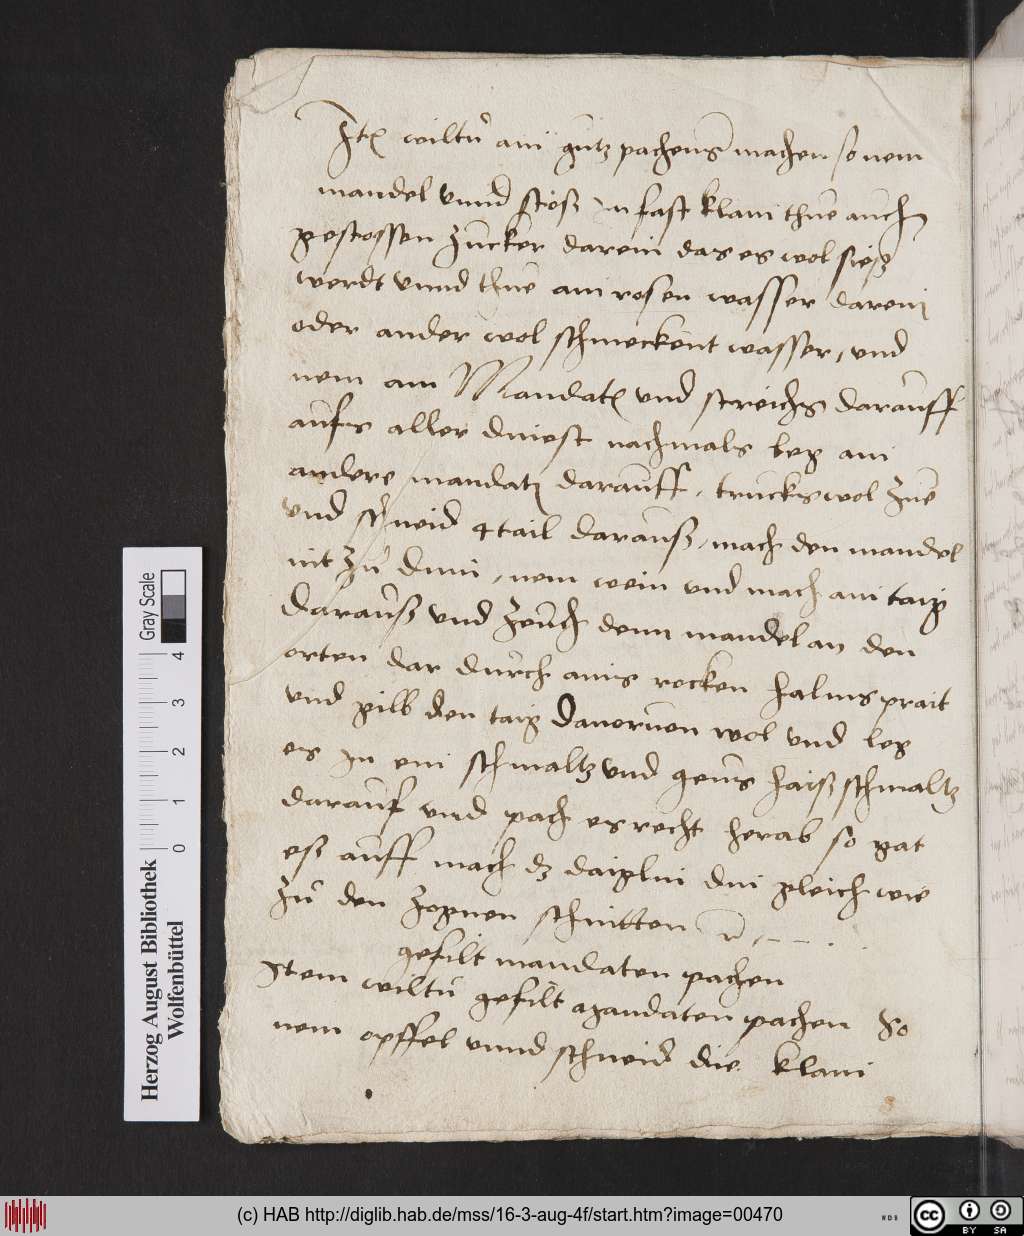 Jtem wiltu ain gutz pachens machen so nem
mandel vnnd stoß in fast klain thue auch
gestossen zucker darein das es wol sieß
werdt vnnd thue ain rosen wasser darein
oder ander wol schmeckent wasser, vnd
nem ain Mandat vnd streichs darauff
aufs aller diniest nachmals leg ain
andere mandat darauff, truckhs wol zue
vnd schneid 4 tail darauß, mach den mandel
nit zu dinn, nem wein vnd mach ain taig
darauß vnd zeuch denn mandel an den
orten dar durch ains rocken halms prait
vnd gilb den taig wol vnd leg
es in ein schmaltz vnd geus haiß schmaltz
darauf vnd pach es recht herab so gat
eß auff mach dz daiglin din gleich wie
zu den zognen schnitten
gefilt mandaten pachen
Jtem wiltu gefilt mandaten pachen So
nem opffel vnnd schneid die klain
Herzog August Bibliothek
Wolfenbüttel
0 1 2 3 4
Gray Scale
(c) HAB http://diglib.hab.de/mss/16-3-aug-4f/start.htm?image=00470
WDB
cc BY SA